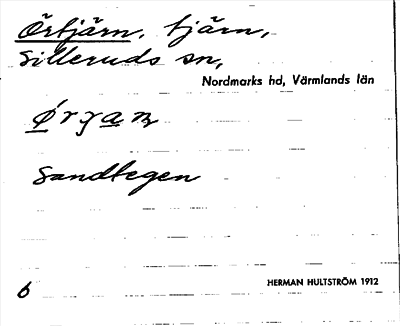 Örtjärn, tjärn,
Silleruds sn,
Nordmarks hd, Värmlands län
Sandtegen
6
HERMAN HULTSTRÖM 1912